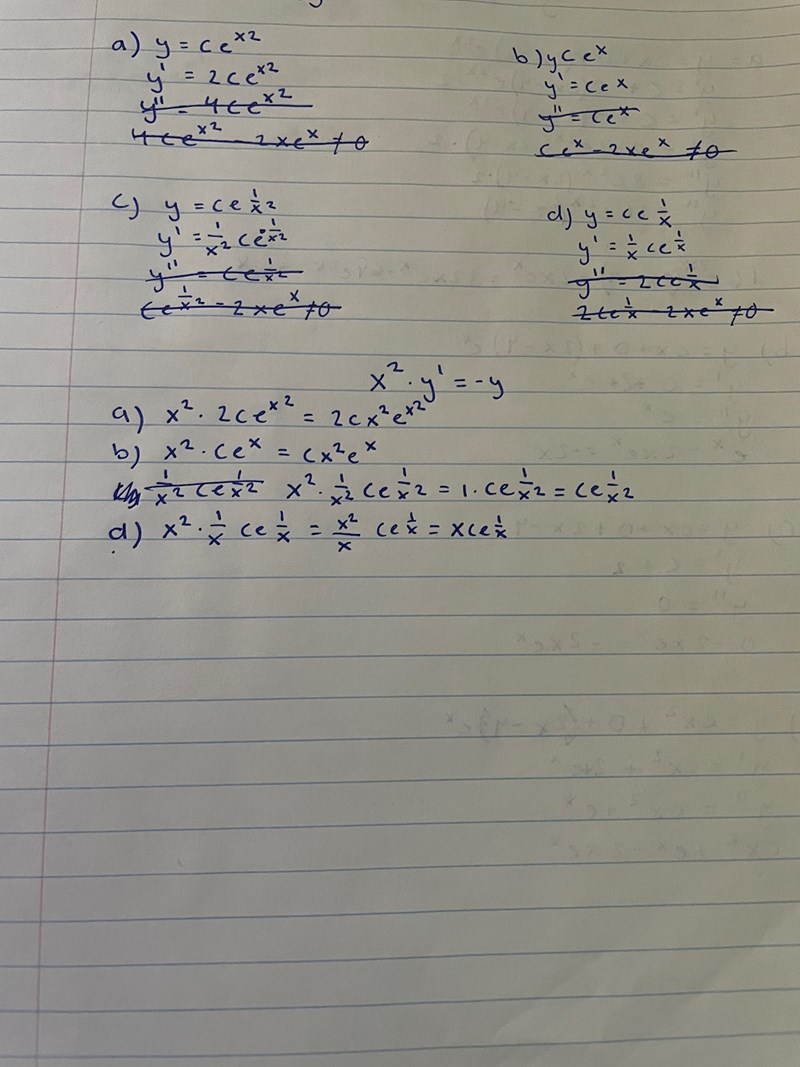 a) y = ce^{x^2}
y' = 2ce^{x^2}
y'' = 4ce^{x^2}
4ce^{x^2} - 2xe^x ≠ 0
b) y ce^x
y' = ce^x
y'' = ce^x
ce^x - 2xe^x ≠ 0
c) y = ce^{\frac{1}{x^2}}
y' = \frac{1}{x^2} ce^{\frac{1}{x^2}}
y'' = ce^{\frac{1}{x^2}}
ce^{\frac{1}{x^2}} - 2xe^x ≠ 0
d) y = ce^{\frac{1}{x}}
y' = \frac{1}{x} ce^{\frac{1}{x}}
y'' = 2ce^{\frac{1}{x}}
2ce^{\frac{1}{x}} - 2xe^x ≠ 0
x^2 · y' = -y
a) x^2 · 2ce^{x^2} = 2cx^2e^{x^2}
b) x^2 · ce^x = cx^2e^x
\frac{1}{x^2} ce^{\frac{1}{x^2}} x^2 · \frac{1}{x^2} ce^{\frac{1}{x^2}} = 1 · ce^{\frac{1}{x^2}} = ce^{\frac{1}{x^2}}
d) x^2 · \frac{1}{x} ce^{\frac{1}{x}} = \frac{x^2}{x} ce^{\frac{1}{x}} = xce^{\frac{1}{x}}